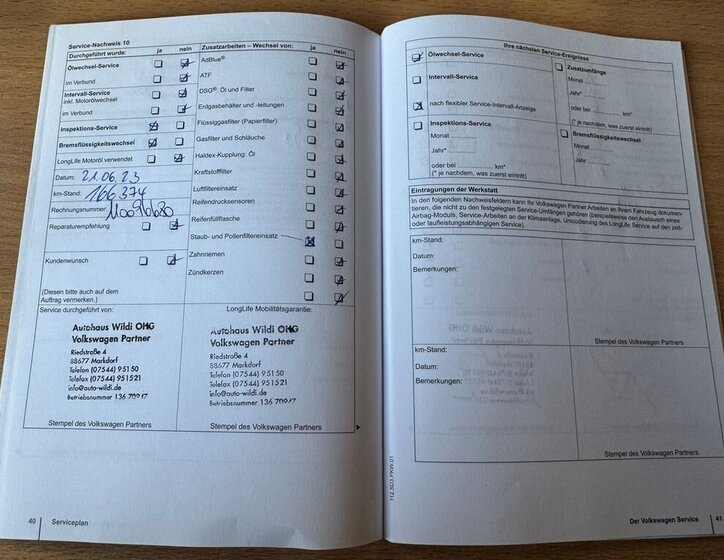 Service-Nachweis 10
Durchgeführt wurde: ja nein
Ölwechsel-Service
im Verbund
Intervall-Service
inkl. Motorölwechsel
im Verbund
Inspektions-Service
Bremsflüssigkeitswechsel
LongLife Motoröl verwendet
Datum: 21.06.23
km-Stand: 166374
Rechnungsnummer:
Reparaturempfehlung
Kundenwunsch
(Diesen bitte auch auf dem
Auftrag vermerken.)
Zusatzarbeiten – Wechsel von: ja nein
AdBlue®
ATF
DSG®: Öl und Filter
Erdgasbehälter und -leitungen
Flüssiggasfilter (Papierfilter)
Gasfilter und Schläuche
Haldex-Kupplung: Öl
Kraftstofffilter
Luftfiltereinsatz
Reifendrucksensoren
Reifenfüllflasche
Staub- und Pollenfiltereinsatz
Zahnriemen
Zündkerzen
Service durchgeführt von:
Autohaus Wildi OHG
Volkswagen Partner
Riedstraße 4
88677 Markdorf
Telefon (07544) 951 50
Telefax (07544) 951521
info@auto-wildi.de
Betriebsnummer 136
Stempel des Volkswagen Partners
LongLife Mobilitätsgarantie:
Autohaus Wildi OHG
Volkswagen Partner
Riedstraße 4
88677 Markdorf
Telefon (07544) 951 50
Telefax (07544) 951521
info@auto-wildi.de
Betriebsnummer 136
Stempel des Volkswagen Partners
40 Serviceplan
Ihre nächsten Service-Ereignisse
Ölwechsel-Service
Intervall-Service
nach flexibler Service-Intervall-Anzeige
Inspektions-Service
Monat
Jahr*
oder bei km*
(* je nachdem, was zuerst eintritt)
Zusatzumfänge
Monat
Jahr*
oder bei km*
(* je nachdem, was zuerst eintritt)
Bremsflüssigkeitswechsel
Monat
Jahr
Eintragungen der Werkstatt
In den folgenden Nachweisfeldern kann Ihr Volkswagen Partner Arbeiten an Ihrem Fahrzeug dokumen-
tieren, die nicht zu den festgelegten Service-Umfängen gehören (beispielsweise den Austausch eines
Airbag-Moduls, Service-Arbeiten an der Klimaanlage, Umcodierung des LongLife Service auf den zeit-
oder laufleistungsabhängigen Service).
km-Stand:
Datum:
Bemerkungen:
Stempel des Volkswagen Partners
km-Stand:
Datum:
Bemerkungen:
Stempel des Volkswagen Partners
112.5D3.PKW.01
Der Volkswagen Service 41